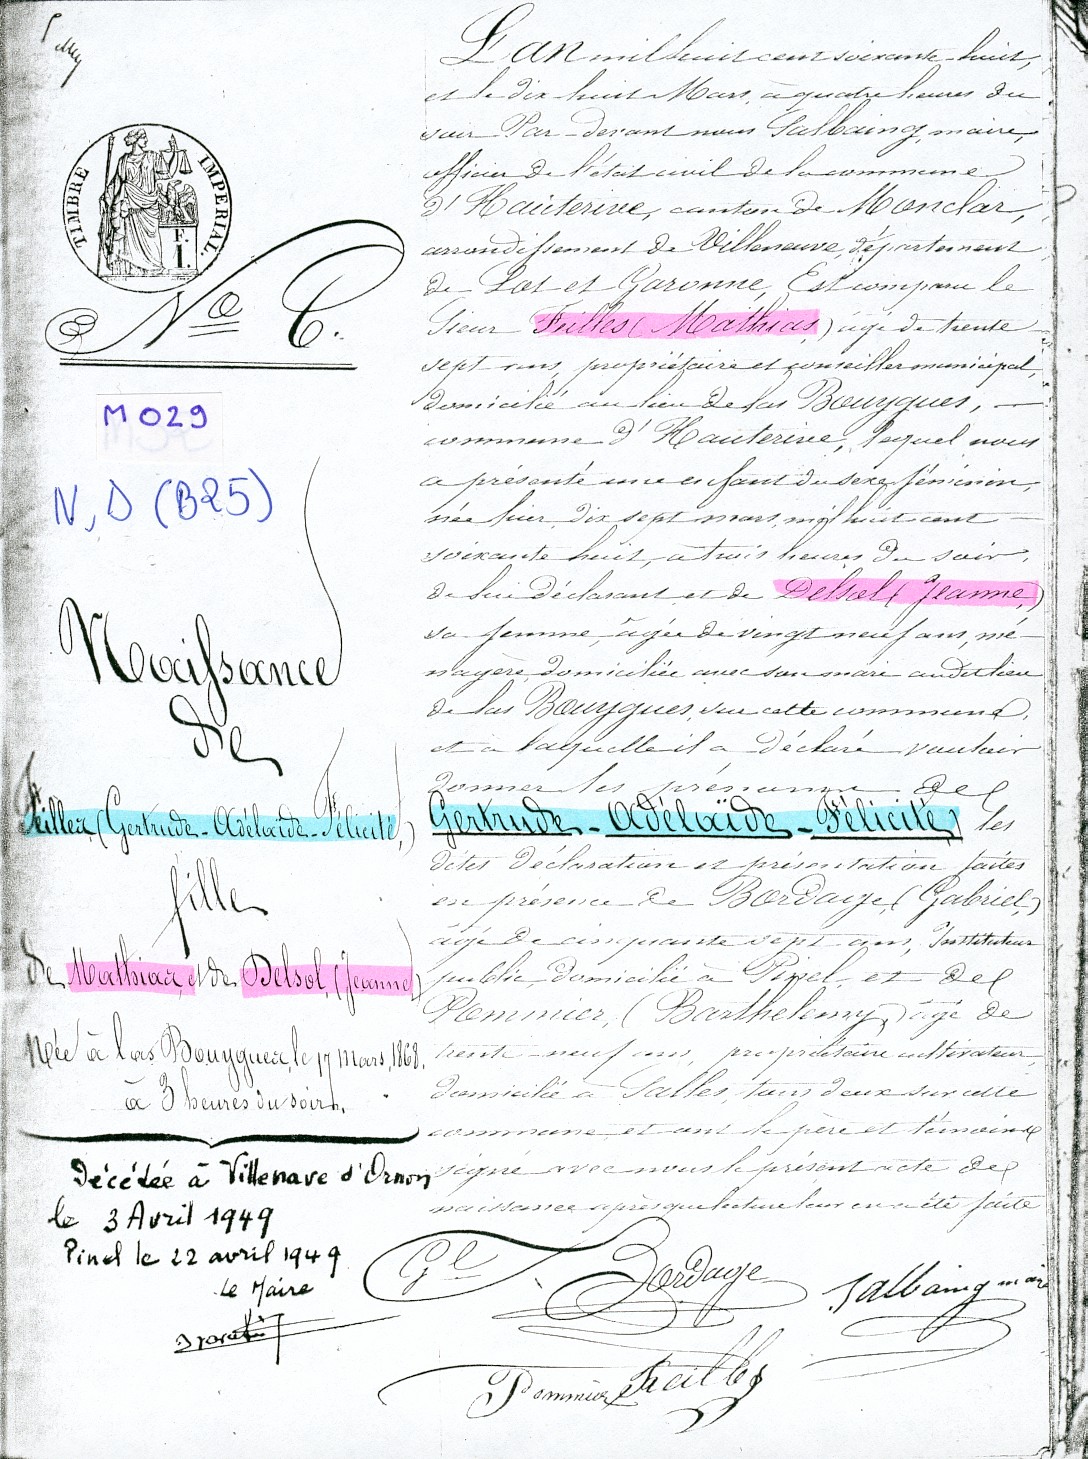 TIMBRE IMPERIAL.
F. I.
No 6.
M 029
N, D (B25)
Naissance
de
Feilles (Gertrude-Adélaïde-Félicité,)
fille
de Mathias, et de Delsol, (Jeanne)
Née à las Bouygues, le 17 mars, 1868.
à 3 heures du soir.
Décédée à Villenave d'Ornon
le 3 Avril 1949
Pinel le 22 avril 1949
Le Maire
L'an mil huit cent soixante-huit,
et le dix huit Mars, à quatre heures du
soir Par-devant nous Salbaing, maire,
officier de l'état civil de la commune
d'Hauterive, canton de Monclar,
arrondissement de Villeneuve, département
de Lot et Garonne, Est comparu le
Sieur Feilles (Mathias,) âgé de trente
sept ans, propriétaire et conseiller municipal,
domicilié au lieu de las Bouygues, —
commune d'Hauterive, lequel nous
a présenté une enfant du sexe féminin,
née hier, dix sept mars, mil huit cent —
soixante huit, à trois heures du soir,
de lui déclarant et de Delsol (Jeanne,)
sa femme, âgée de vingt neuf ans, mé-
nagère, domiciliée avec son mari au dit lieu
de las Bouygues, sur cette commune,
et à laquelle il a déclaré vouloir
donner les prénoms de
Gertrude-Adélaïde-Félicité, les
dites déclaration et présentation faites
en présence de Bordage, (Gabriel,)
âgé de cinquante sept ans, Instituteur
public domicilié à Pinel, et de
Pommier, (Barthelemy,) âgé de
trente-neuf ans, propriétaire cultivateur,
domicilié à Salles, tous deux sur cette
commune et ont le père et témoins
signé avec nous le présent acte de
naissance après que lecture leur en a été faite
Gel Bordage
Salbaing maire
Pommier Feilles